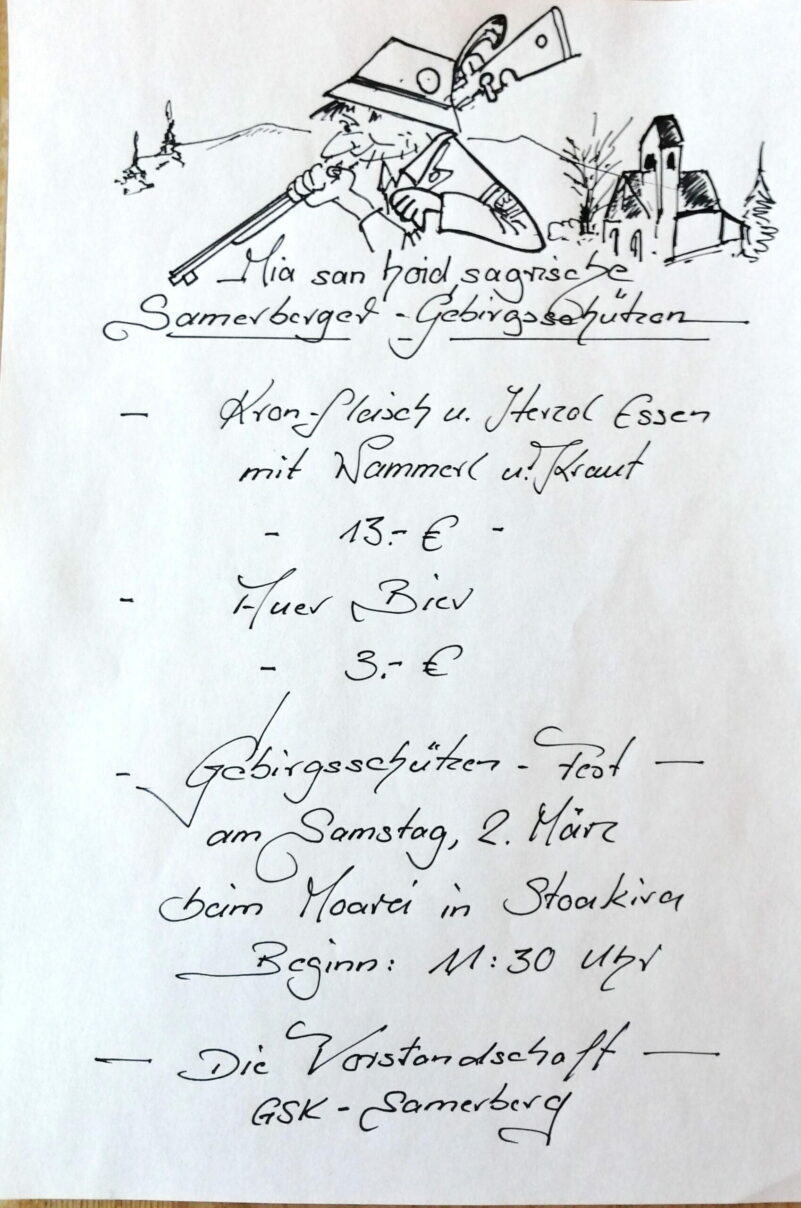 Mia san hoid sagrische
Samerberger - Gebirgsschützen
- Kron-fleisch u. Herzal Essen
mit Wammerl u. Kraut
- 13.- € -
- Auer Bier
- 3.- €
- Gebirgsschützen - Fest -
am Samstag, 2. März
beim Moarei in Stoakira
Beginn: 11:30 Uhr
- Die Vorstandschaft -
GSK - Samerberg